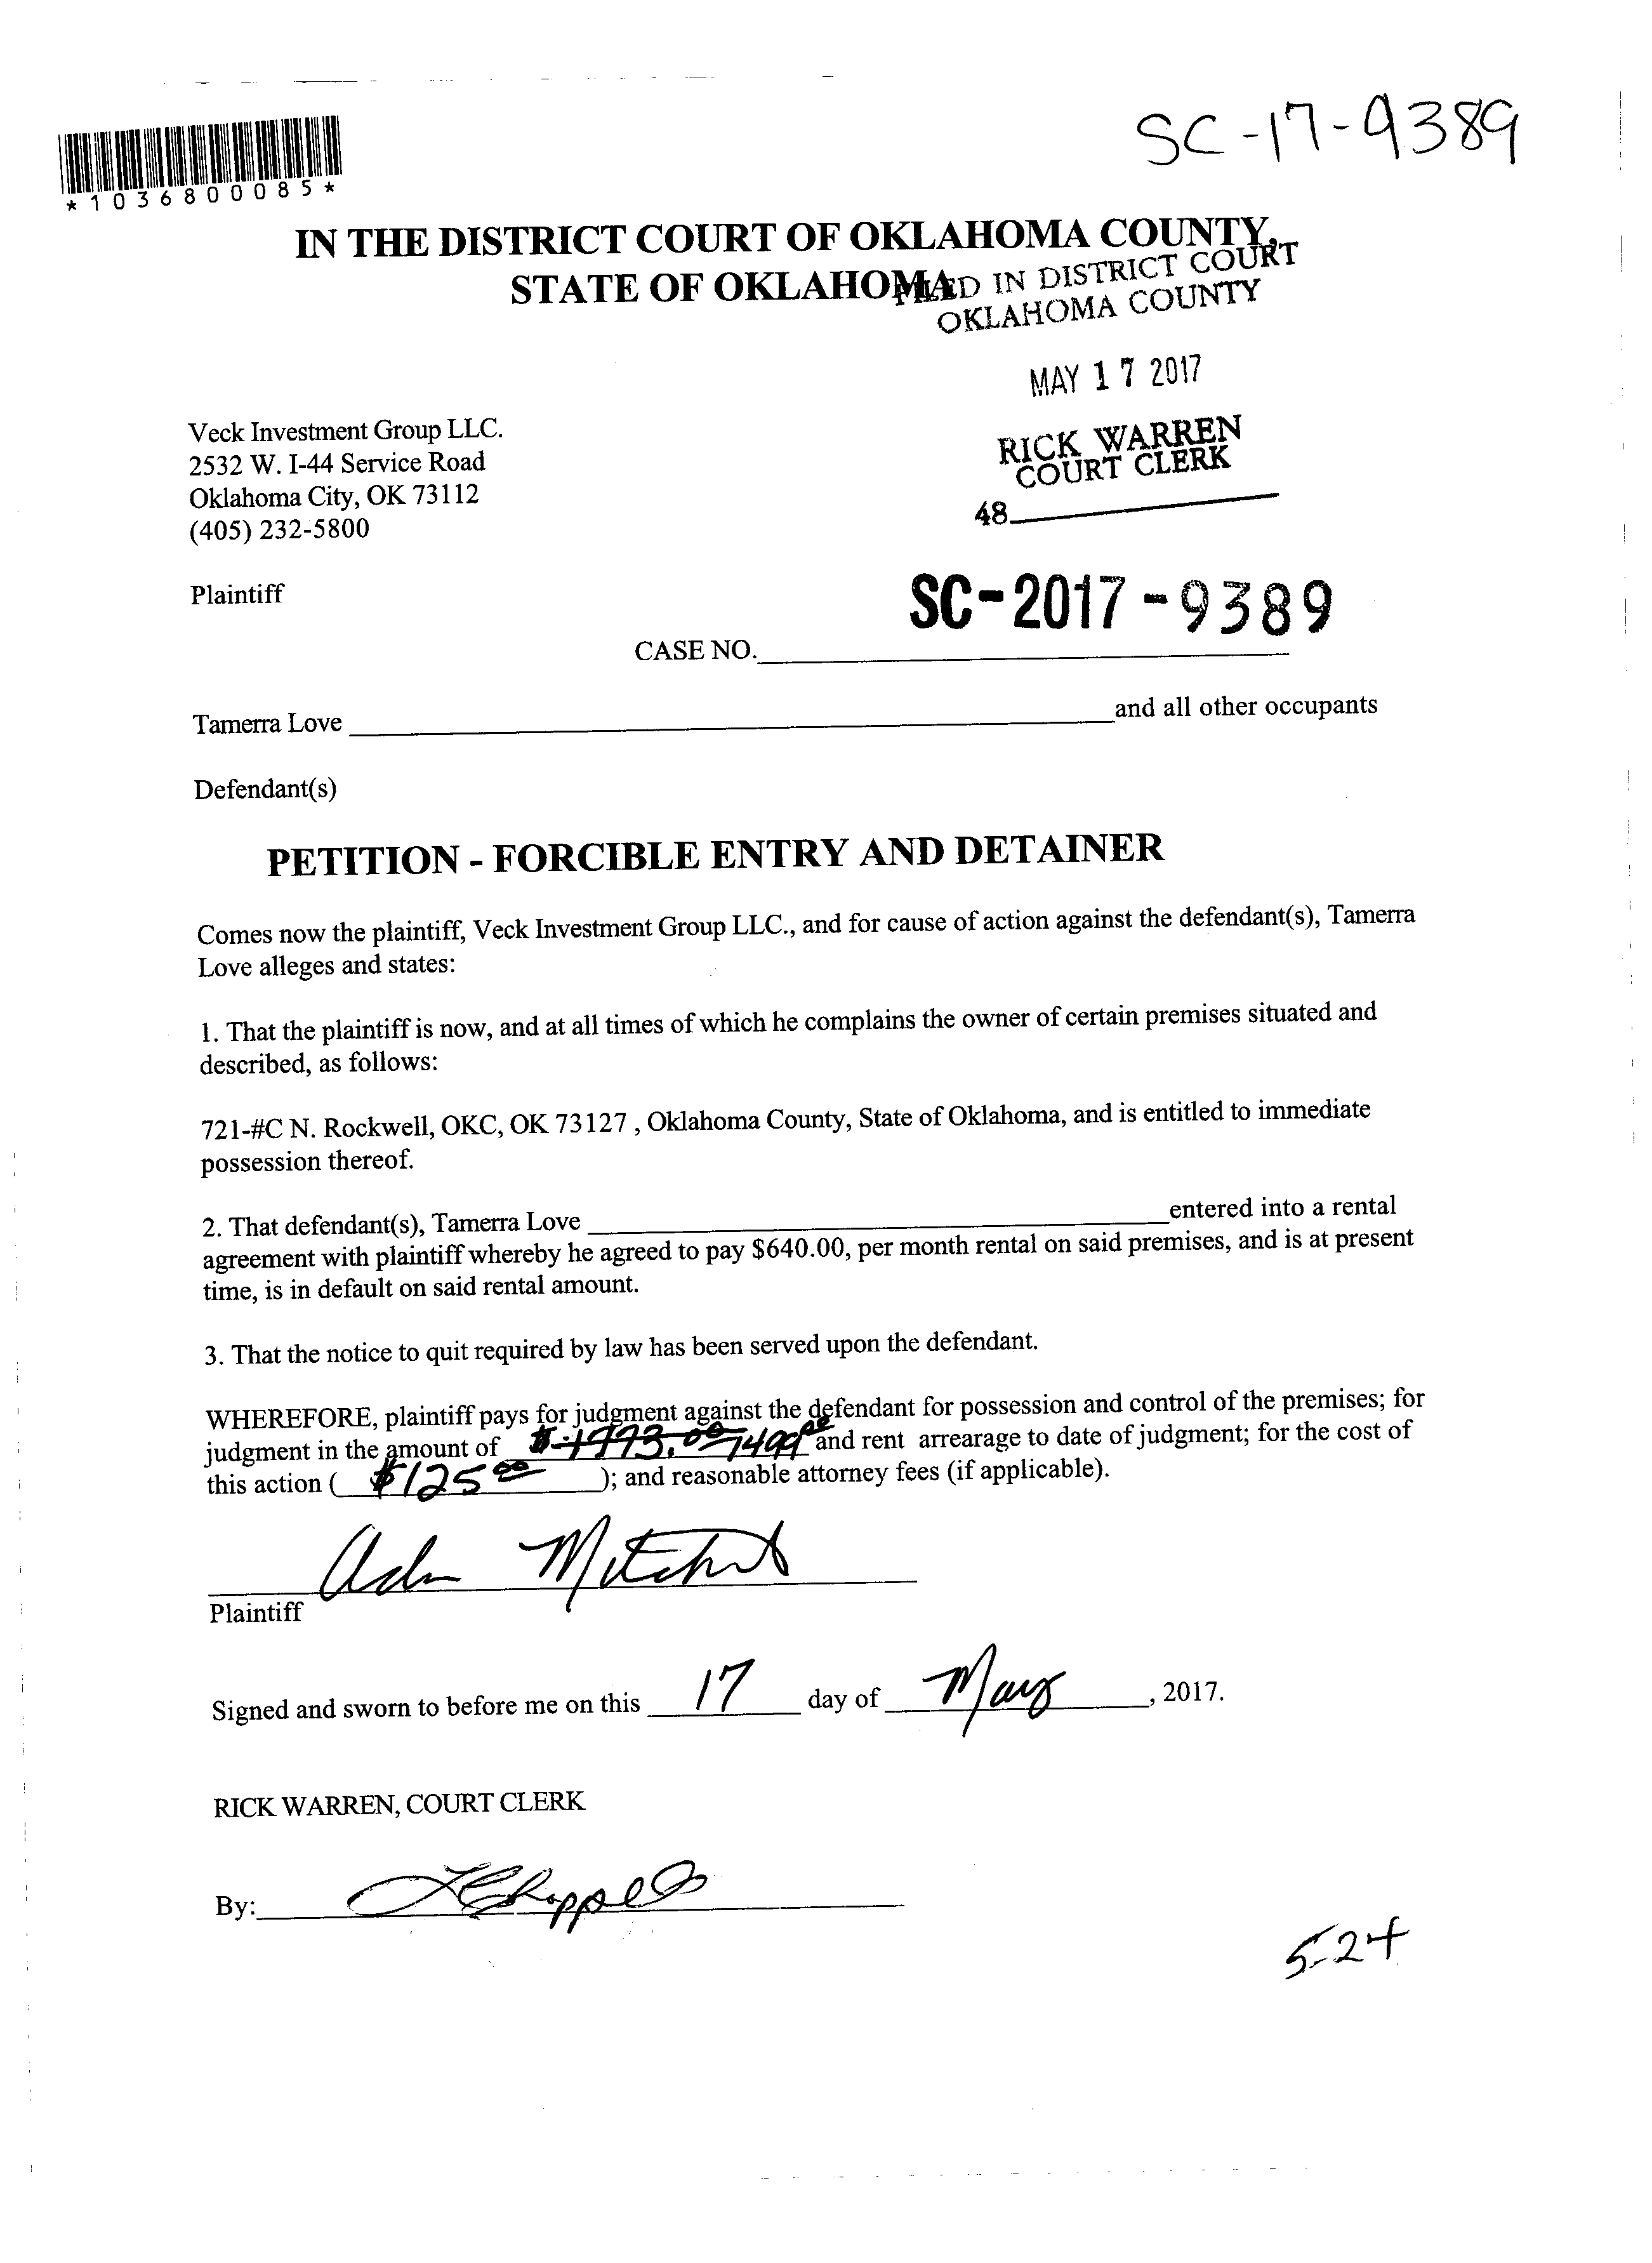 SC-17-9389
*1036800085*
IN THE DISTRICT COURT OF OKLAHOMA COUNTY,
STATE OF OKLAHOMA
FILED IN DISTRICT COURT
OKLAHOMA COUNTY
MAY 17 2017
RICK WARREN
COURT CLERK
48
Veck Investment Group LLC.
2532 W. I-44 Service Road
Oklahoma City, OK 73112
(405) 232-5800
Plaintiff
SC-2017-9389
CASE NO.
Tamerra Love and all other occupants
Defendant(s)
PETITION - FORCIBLE ENTRY AND DETAINER
Comes now the plaintiff, Veck Investment Group LLC., and for cause of action against the defendant(s), Tamerra
Love alleges and states:
1. That the plaintiff is now, and at all times of which he complains the owner of certain premises situated and
described, as follows:
721-#C N. Rockwell, OKC, OK 73127 , Oklahoma County, State of Oklahoma, and is entitled to immediate
possession thereof.
2. That defendant(s), Tamerra Love entered into a rental
agreement with plaintiff whereby he agreed to pay $640.00, per month rental on said premises, and is at present
time, is in default on said rental amount.
3. That the notice to quit required by law has been served upon the defendant.
WHEREFORE, plaintiff pays for judgment against the defendant for possession and control of the premises; for
judgment in the amount of and rent arrearage to date of judgment; for the cost of
this action ( $125 00 ); and reasonable attorney fees (if applicable).
Plaintiff
Signed and sworn to before me on this 17 day of May , 2017.
RICK WARREN, COURT CLERK
By:
5-24